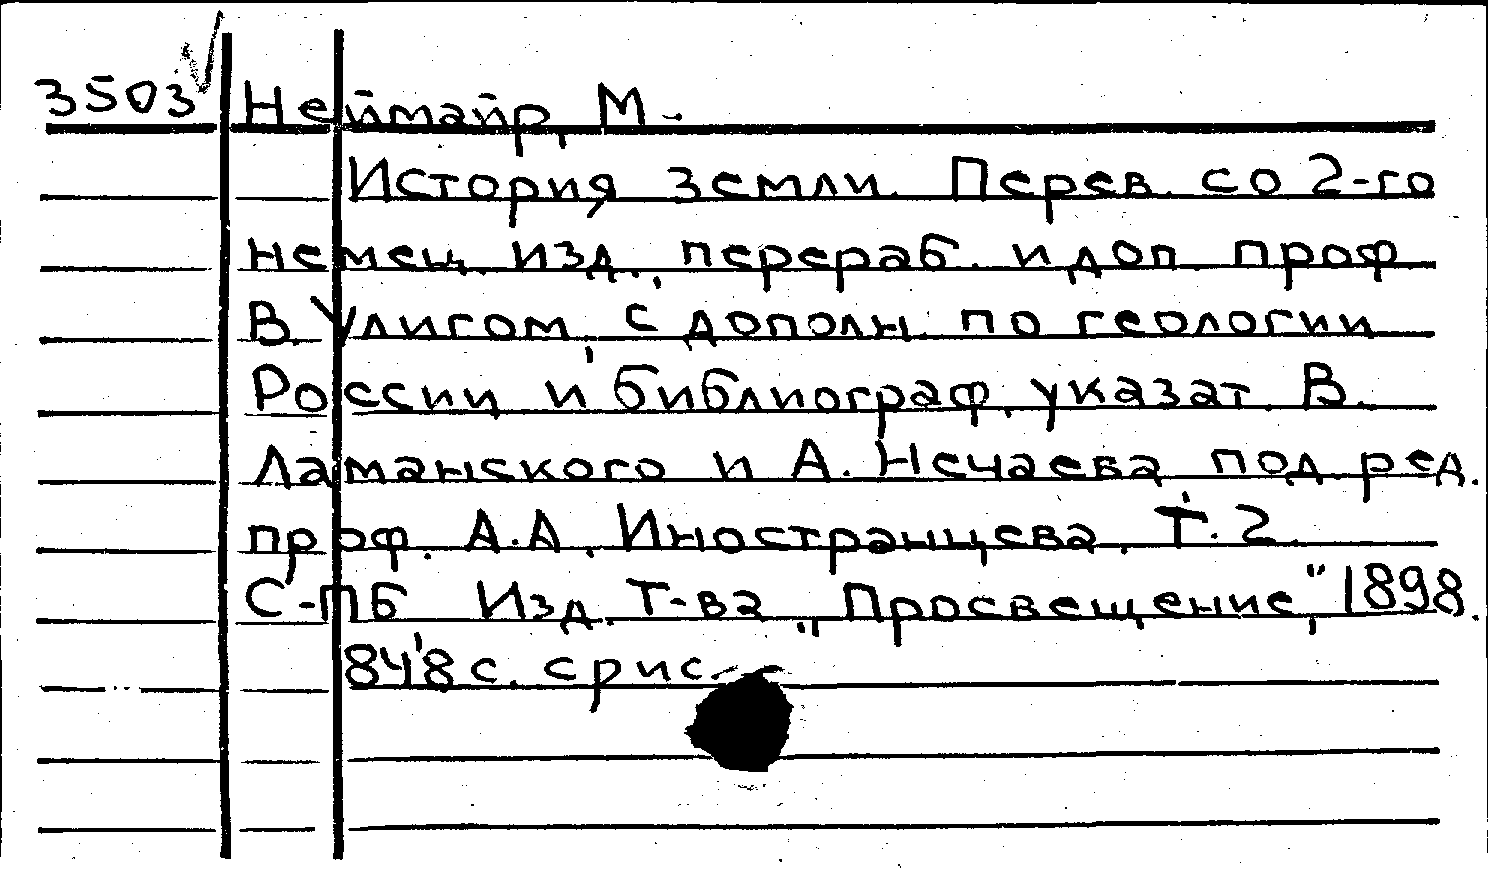 3503 Неймайр, М.
История земли. Перев. со 2-го
немец. изд., перераб. и доп. проф
В. Улигом, с дополн. по геологии
России и библиограф. указат. В.
Ламанского и А. Нечаева под ред.
проф. А.А. Иностранцева. Т. 2.
С-ПБ Изд. Т-ва „Просвещение", 1898.
848 с. с рис.